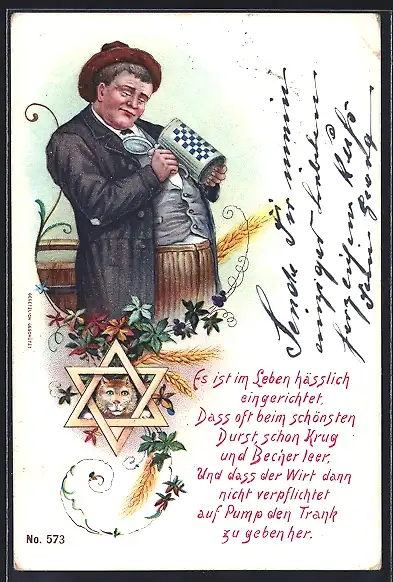 Sende Dir mein
einziger lieben
herzeigen Kuss
Dein Georg
GESETZLICH GESCHÜTZT
Es ist im Leben hässlich
eingerichtet,
Dass oft beim schönsten
Durst, schon Krug
und Becher leer,
Und dass der Wirt dann
nicht verpflichtet
auf Pump den Trank
zu geben her.
No. 573